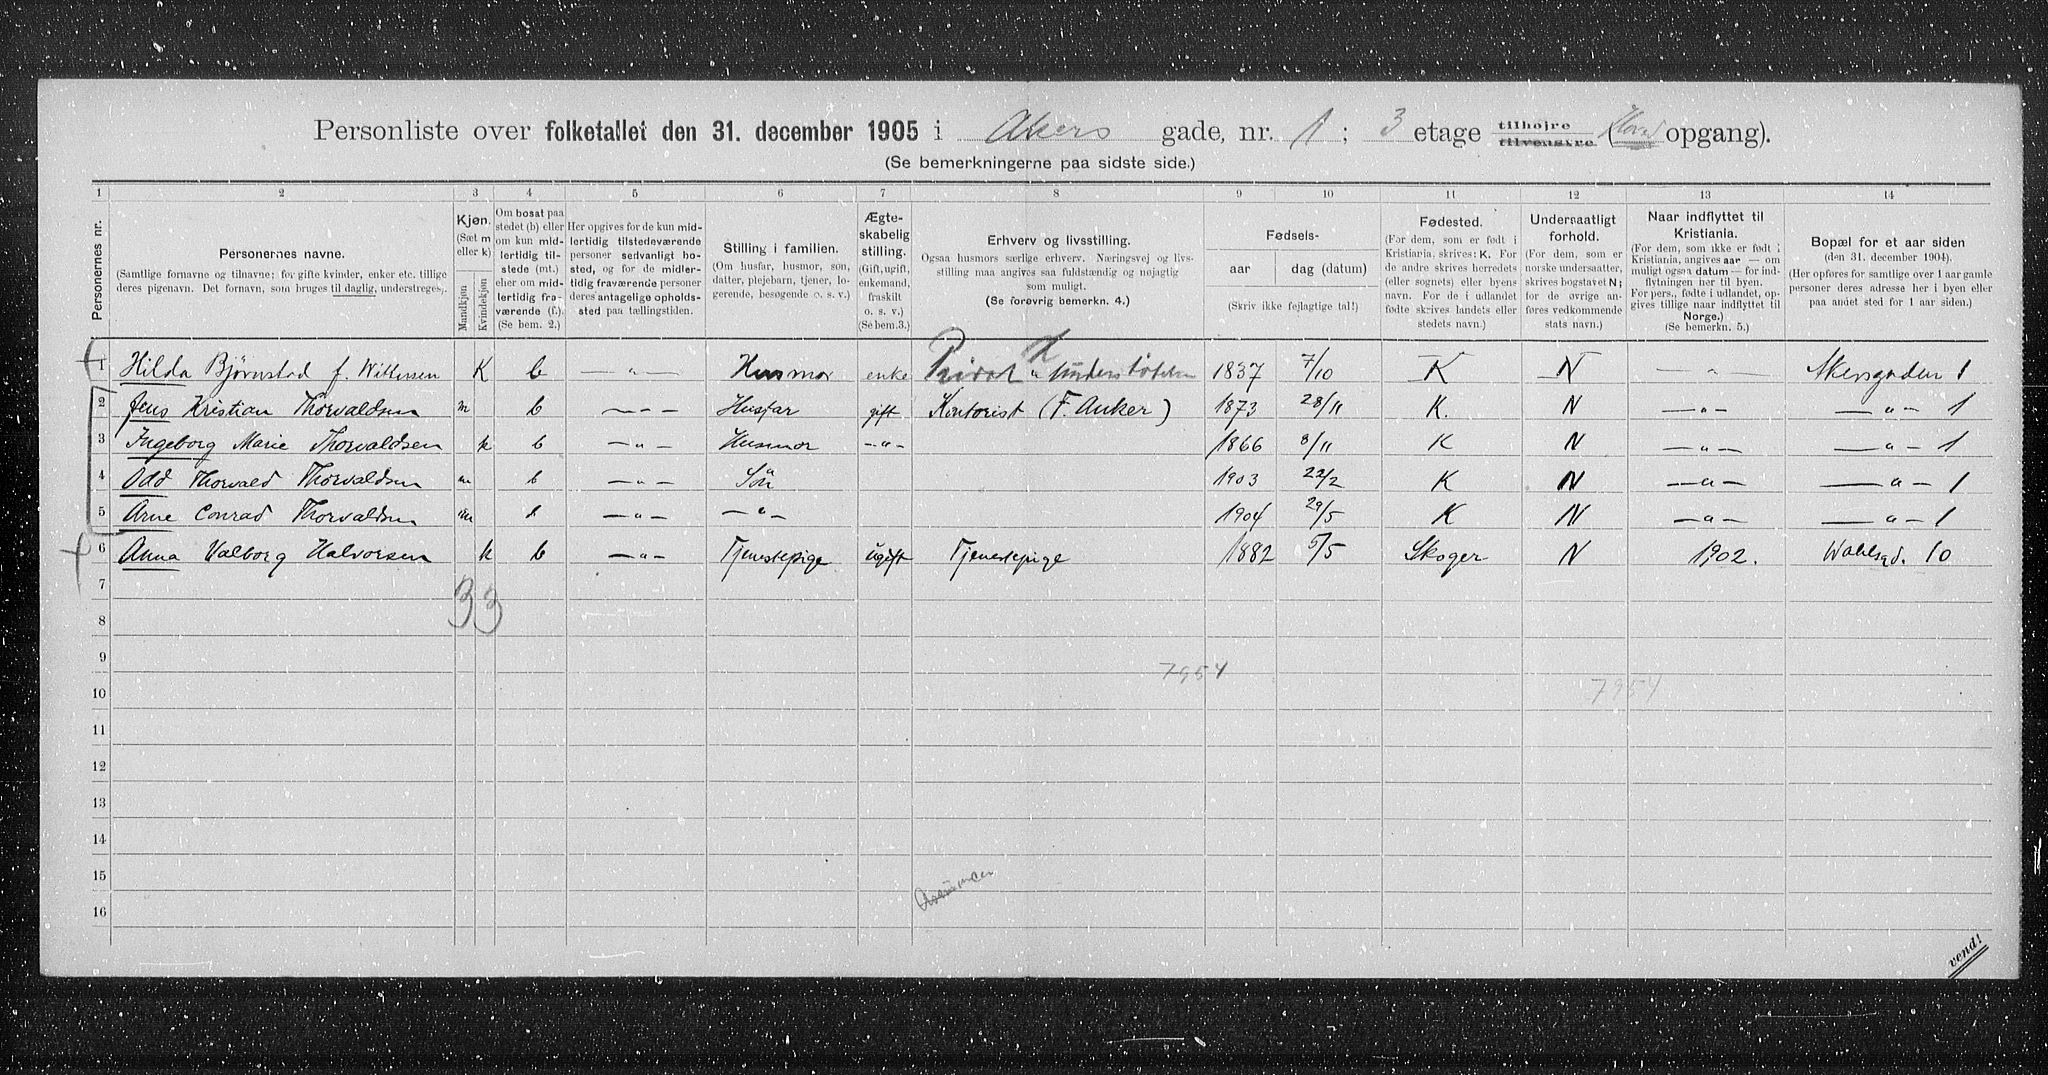 Personliste over folketallet den 31. december 1905 i Akers gade, nr. 1; 3 etage tilhøjre tilvenstre (Hoved opgang).
(Se bemerkningerne paa sidste side.)
1 2 3 4 5 6 7 8 9 10 11 12 13 14
Personernes nr.
Personernes navne.
(Samtlige fornavne og tilnavne; for gifte kvinder, enker etc. tillige deres pigenavn. Det fornavn, som bruges til daglig, understreges.)
Kjøn.
(Sæt m eller k)
Mandkjøn
Kvindekjøn
Om bosat paa stedet (b) eller om kun midlertidig tilstede (mt.) eller om midlertidig fraværende (f.).
(Se bem. 2.)
Her opgives for de kun midlertidig tilstedeværende personer sedvanlig bosted, og for de midlertidig fraværende personer deres antagelige opholdssted paa tællingstiden.
Stilling i familien.
(Om husfar, husmor, søn, datter, plejebarn, tjener, logerende, besøgende o. s. v.)
Ægteskabelig stilling.
(Gift, ugift, enkemand, fraskilt o. s. v.)
(Se bem. 3.)
Erhverv og livsstilling.
Ogsaa husmors særlige erhverv. Næringsvej og livsstilling maa angives saa fuldstændig og nøjagtig som muligt.
(Se forøvrig bemerkn. 4.)
Fødsels-
aar
dag (datum)
(Skriv ikke fejlagtige tal!)
Fødested.
(For dem, som er født i Kristiania, skrives: K. For de andre skrives herredets (eller sognets) eller byens navn. For de i udlandet fødte skrives landets eller stedets navn.)
Undersaatligt forhold.
(For dem, som er norske undersaatter, skrives bogstavet N; for de øvrige anføres vedkommende stats navn.)
Naar indflyttet til Kristiania.
(For dem, som ikke er født i Kristiania, angives aar — om muligt ogsaa datum — for indflytningen her til byen. For pers., fødte i udlandet, opgives tillige naar indflyttet til Norge.)
(Se bemerkn. 5.)
Bopæl for et aar siden
(den 31. december 1904).
(Her opføres for samtlige over 1 aar gamle personer deres adresse her i byen eller paa andet sted for 1 aar siden.)
1 Hilda Bjørnstad f. Willersen K b — " — Husmor enke Privat understøttelse 1837 7/10 K N — " — Akersgaden 1
2 Jens Kristian Thorvaldsen m b — " — Husfar gift Kontorist (F. Anker) 1873 28/11 K. N — " — — " — 1
3 Ingeborg Marie Thorvaldsen k b — " — Husmor — " — 1866 8/11 K N — " — — " — 1
4 Odd Thorvald Thorvaldsen m b — " — Søn 1903 22/2 K N — " — — " — 1
5 Arne Conrad Thorvaldsen m b — " — — " — 1904 29/5 K N — " — — " — 1
6 Anna Valborg Halvorsen k b — " — Tjenestepige ugift Tjenestepige 1882 5/5 Skoger N 1902. Wahlsgd. 10
7
33
8
9
7954
10
7954
11
12
13
14
15
16
vend!